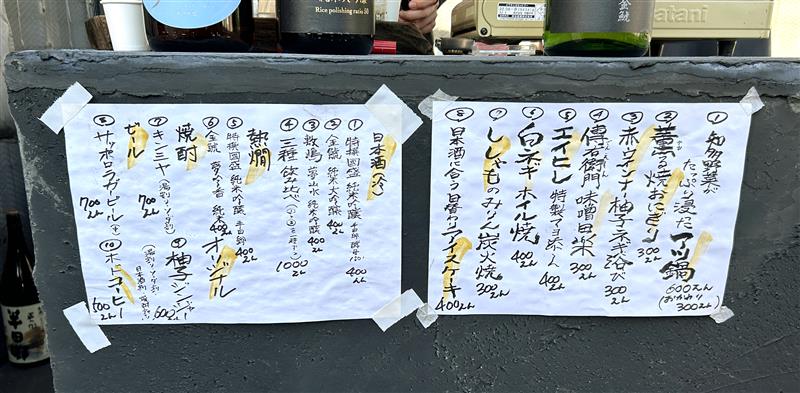 Rice polishing ratio 50
金鯱
日本酒(冷)
① 特撰國盛 純米大吟醸 400えん
② 金鯱 純米大吟醸 400えん
③ 敷嶋 夢山水 純米吟醸 400えん
④ 三種飲み比べ 1000えん
熱燗
⑤ 特撰國盛 純米吟醸 400えん
⑥ 金鯱 夢吟香 純米 400えん
焼酎
⑦ キンミヤ 700えん
ビール
⑧ サッポロラガービール 700えん
オリジナル
⑨ 柚子ジンジャー 600えん
⑩ ホットコーヒー 500えん
① 知多野菜が
たっぷり浸だアツ鍋
600えん
(おかわり300えん)
② 薫る焼おにぎり 300えん
③ 赤ウインナー 柚子ネギ浴び 300えん
④ 傳右衛門味噌田楽 300えん
⑤ エイヒレ 特製マヨ添え 400えん
⑥ 白ネギホイル焼 400えん
⑦ ししゃものみりん炭火焼 300えん
⑧ 日本酒に合う日替わりアイスケーキ 400えん